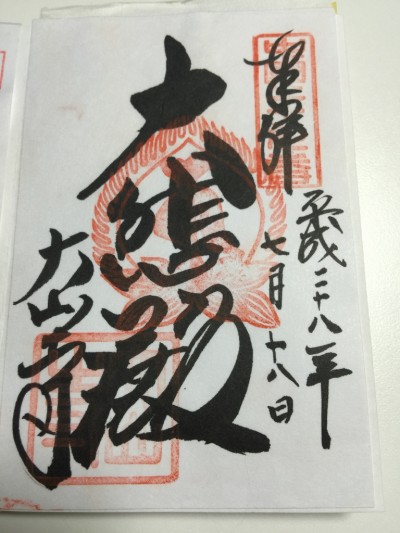 奉拝
平成二十八年
七月十八日
大悲殿
大山寺